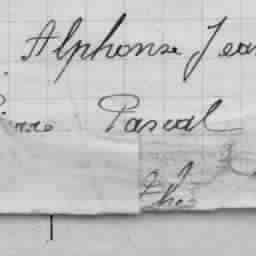 Alphonse Jean
Pierre Pascal